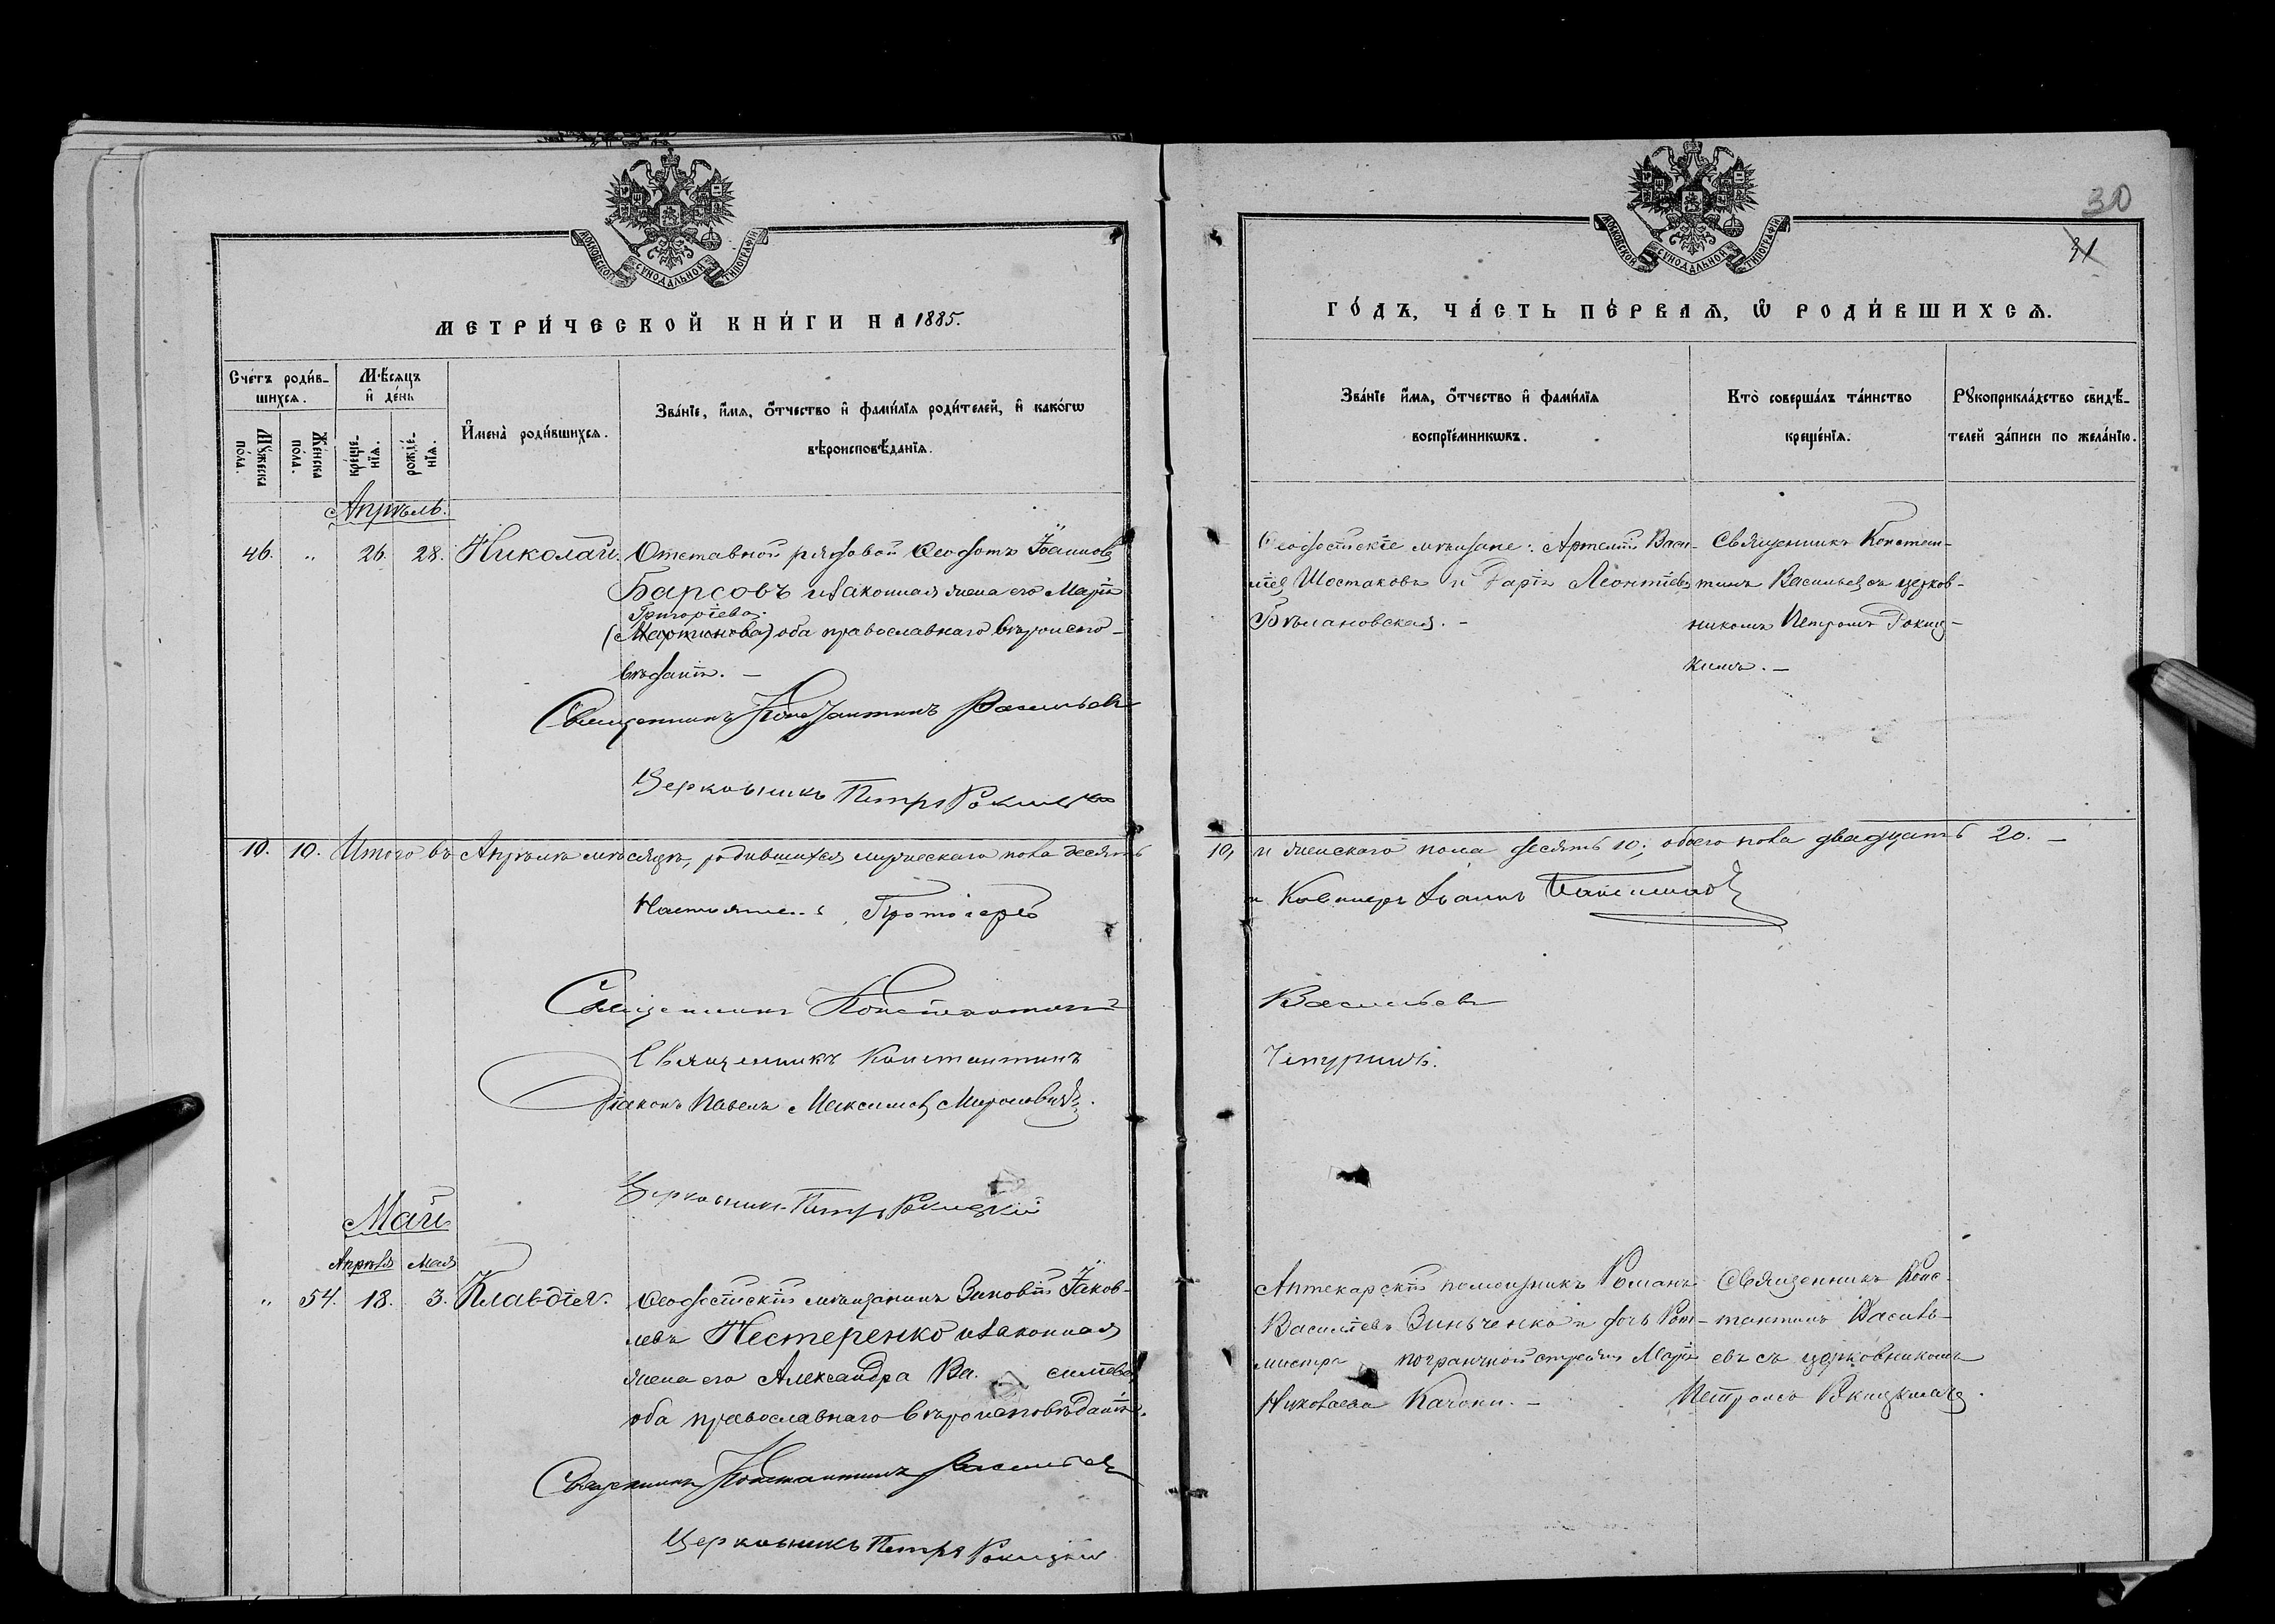 МОСКОВСКОЙ СѴНОДАЛЬНОЙ ТИПОГРАФІИ
МЕТРИ́ЧЕСКОЙ КНИ́ГИ НА 1885.
Сче́тъ роди́в-
шихсѧ.
Мѣ́сѧцъ
и҆ де́нь
Мꙋ́жеска
по́ла.
Же́нска
по́ла.
креще́-
нїѧ.
рожде́-
нїѧ.
И҆мена̀ роди́вшихсѧ.
Зва́нїе, и҆́мѧ, ѻ҆́тчество и҆ фами́лїѧ роди́телей, и҆ како́гѡ
вѣроисповѣ́данїѧ.
Апрѣль.
46. „ 26. 28. Николай. Отставной рядовой Ѳеодотъ Іоанновъ
Барсовъ и законная жена его Марія
Григоріева.
(Мартинова) оба православнаго вѣроиспо-
вѣданія. —
Священникъ Константинъ Васильевъ
Церковникъ Петръ Рокицкій
10. 10. Итого въ Апрѣлѣ мѣсяцѣ, родившихся мужескаго пола десять
Настоятель, Протоіерей
Священникъ Константинъ
Священникъ Константинъ
Діаконъ Павелъ Максимовъ Мироновичъ.
Церковникъ Петръ Рокицкій
Май
Апрѣля Мая
„ 54. 18. 3. Клавдія. Ѳеодосійскій мѣщанинъ Зиновій Іаков-
левъ Нестеренко и законная
жена его Александра Ва. силіева
оба православнаго вѣроисповѣданія.
Священникъ Константинъ Васильевъ
Церковникъ Петръ Рокицкій
30
31
МОСКОВСКОЙ СѴНОДАЛЬНОЙ ТИПОГРАФІИ
ГО́ДЪ, ЧА́СТЬ ПЕ́РВАѦ, Ѡ҆ РОДИ́ВШИХСѦ.
Зва́нїе и҆́мѧ, ѻ҆́тчество и҆ фами́лїѧ
воспрїе́мникѡвъ.
Кто̀ соверша́лъ та́инство
креще́нїѧ.
Рꙋкоприкла́дство свидѣ́-
телей за́писи по жела́нїю.
Ѳеодосійскіе мѣщане: Артемій Васи- Священникъ Констан-
ліевъ Шостаковъ и Дарія Леонтіева тинъ Васильевъ съ церков-
Бѣлановская. — никомъ Петромъ Рокиц-
кимъ. —
10, и женскаго пола десять 10; обоего пола двадцать 20. —
Іоаннъ
Васильевъ
Чепуринъ.
Аптекарскій помощникъ Романъ Священникъ Конс-
Василіевъ Зинченко и дочь Рот- тантинъ Василь-
мистра пограничной стражи Марія евъ съ церковникомъ
Николаева Качони. — Петромъ Рокицкимъ.